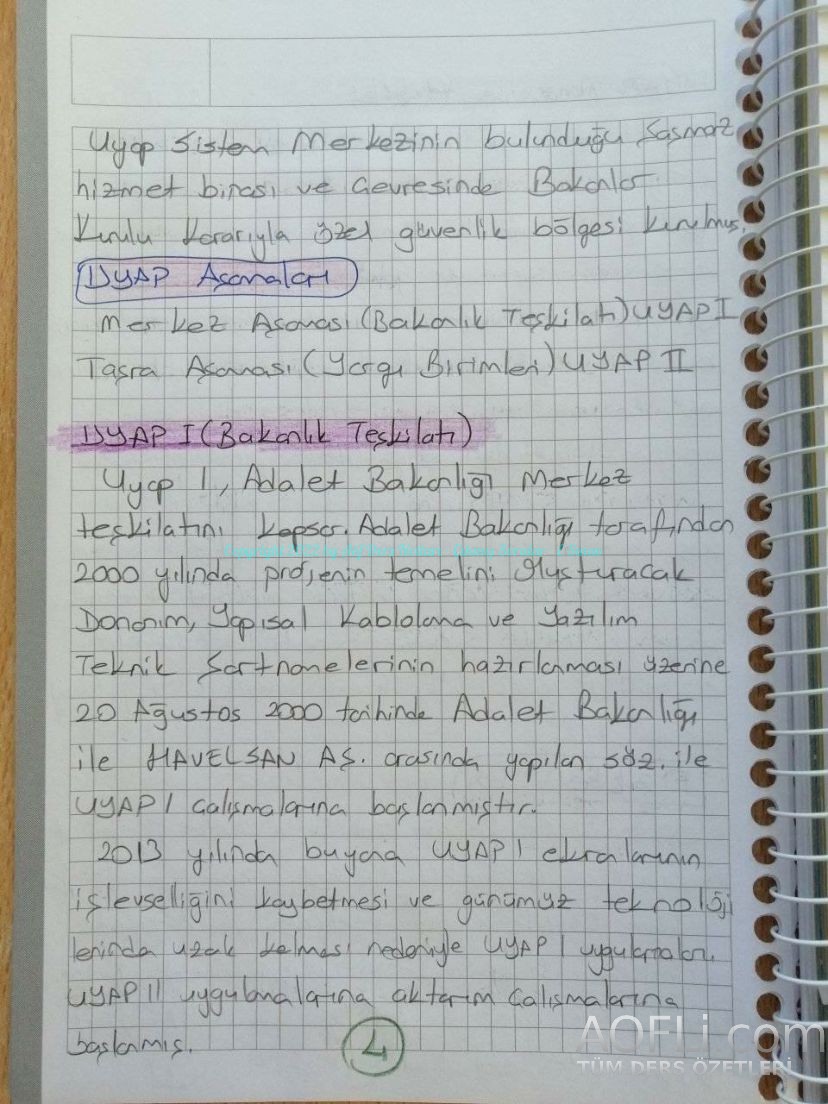 Uyap Sistem Merkezinin bulunduğu Şaşmaz
hizmet binası ve Çevresinde Bakanlar
Kurulu Kararıyla özel güvenlik bölgesi kurulmuş.
UYAP Aşamaları
Merkez Aşaması (Bakanlık Teşkilatı) UYAP I
Taşra Aşaması (Yargı Birimleri) UYAP II
UYAP I (Bakanlık Teşkilatı)
Uyap I, Adalet Bakanlığı Merkez
teşkilatını kapsar. Adalet Bakanlığı tarafından
2000 yılında projenin temelini oluşturacak
Donanım, Yapısal Kablolama ve Yazılım
Teknik Şartnamelerinin hazırlanması üzerine
20 Ağustos 2000 tarihinde Adalet Bakanlığı
ile HAVELSAN AŞ. arasında yapılan söz. ile
UYAP I çalışmalarına başlanmıştır.
2013 yılında buyana UYAP I ekranlarının
işlevselliğini kaybetmesi ve günümüz teknoloji
lerinda uzak kalması nedeniyle UYAP I uygulamaları
UYAP II uygulamalarına aktarım çalışmalarına
başlanmış.
4
AOFLi.com
TÜM DERS ÖZETLERİ